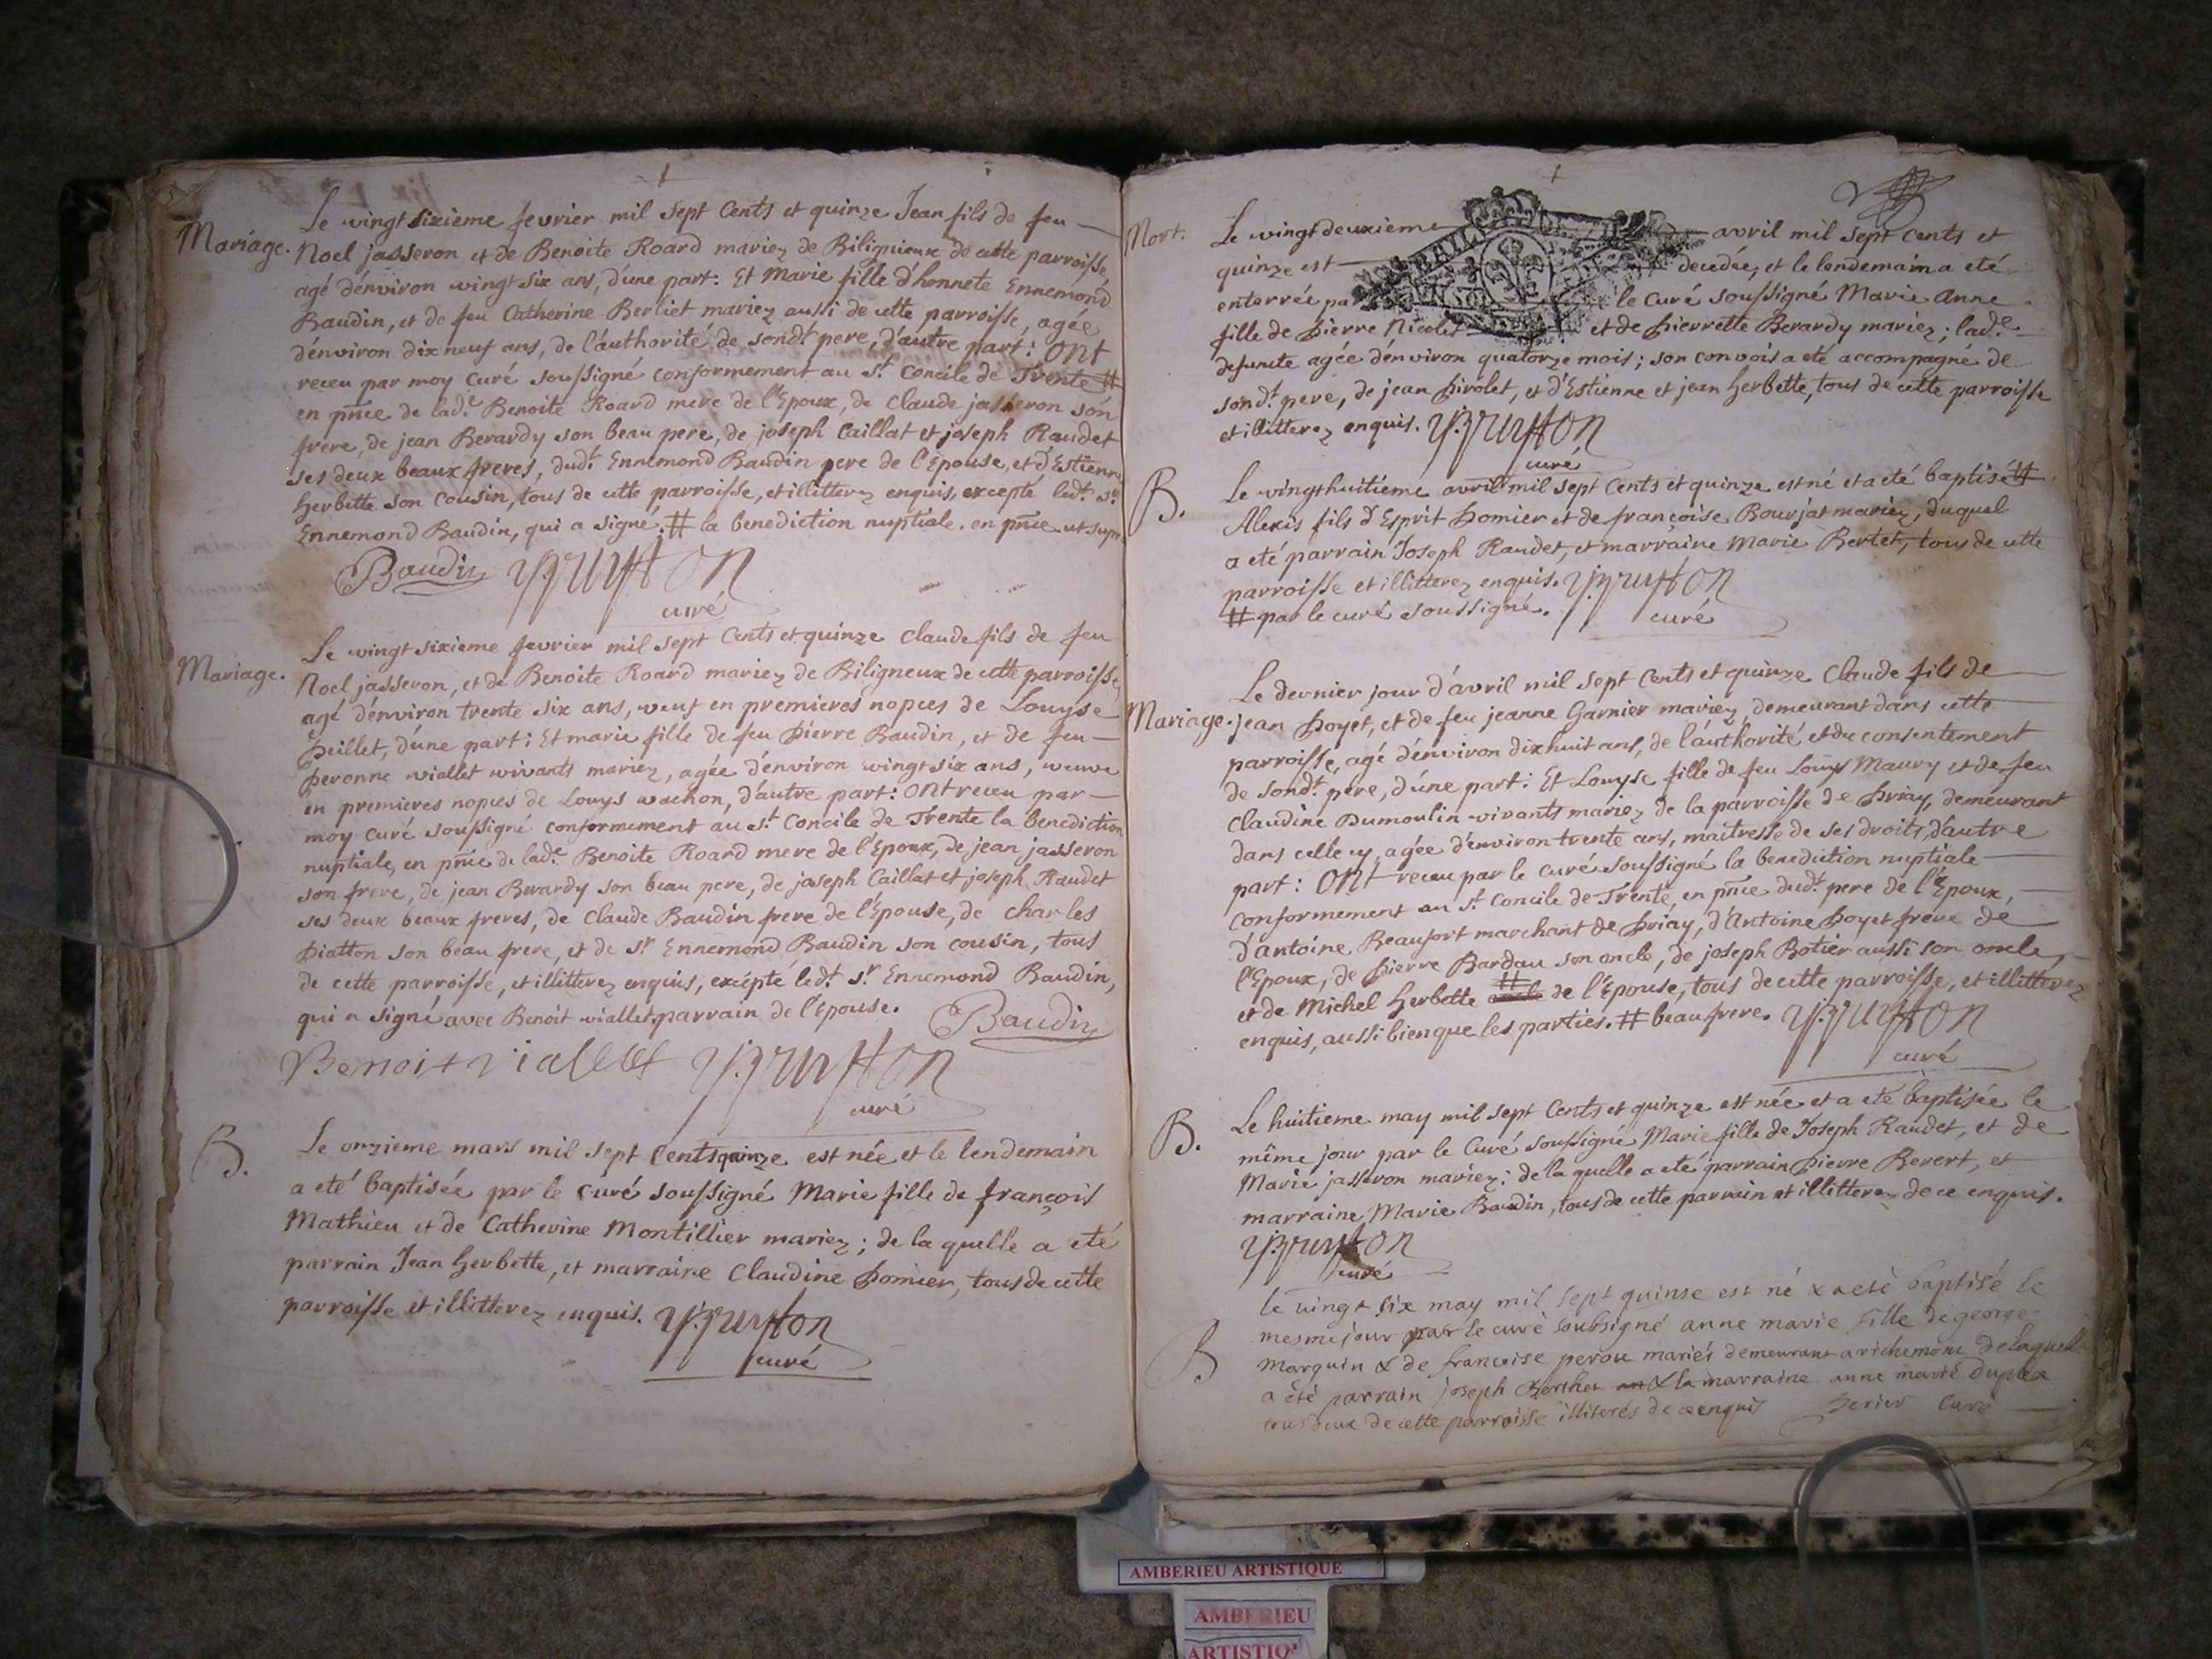 Mariage.
Le vingt sixieme fevrier mil sept Cents et quinze Jean fils de feu
Noel jasseron et de Benoite Roard mariez de Biligneux de cette parroisse
agé d'énviron vingt six ans, d'une part: Et Marie fille d'honnete Ennemond
Baudin, et de feu Catherine Berliet mariez aussi de cette parroisse, agée
d'énviron dix neuf ans, de l'áuthorité de sondt pere, d'autre part: Ont
receu par moy Curé soussigné conformement au St Concile de Trente #
en pñce de lade Benoite Roard mere de l'Epoux, de Claude jasseron son
frere, de jean Berardy son beau pere, de joseph Caillat et joseph Raudet
ses deux beaux freres, dudt Ennemond Baudin pere de l'épouse, et d'Estienne
Herbette son cousin, tous de cette parroisse, et illitterez enquis, excepté ledt sr
Ennemond Baudin, qui a signé. # la benediction nuptiale. en pñce ut supra
Baudin
curé
Mariage.
Le vingt sixieme fevrier mil sept Cents et quinze Claude fils de feu
Noel jasseron, et de Benoite Roard mariez de Biligneux de cette parroisse
agé d'énviron trente six ans, veuf en premieres nopces de Louyse
Peillet, d'une part: Et marie fille de feu Pierre Baudin, et de feu
Peronne viallet vivants mariez, agée d'énviron vingt six ans, veuve
en premieres nopces de Louys vachon, d'autre part: Ont receu par
moy Curé soussigné conformement au st Concile de Trente la benediction
nuptiale, en pñce de lade Benoite Roard mere de l'Epoux, de jean jasseron
son frere, de jean Berardy son beau pere, de joseph Caillat et joseph Raudet
ses deux beaux freres, de Claude Baudin frere de l'Epouse, de charles
Piatton son beau frere, et de sr Ennemond Baudin son cousin, tous
de cette parroisse, et illitterez enquis, excépté ledt sr Ennemond Baudin,
qui a signé avec Benoit viallet parrain de l'Epouse. Baudin
Benoit viallet
curé
B.
Le onzieme mars mil sept Cents quinze est née et le lendemain
a eté baptisée par le Curé soussigné Marie fille de françois
Mathieu et de Catherine Montillier mariez; de la quelle a eté
parrain Jean Herbette, et marraine Claudine Pomier, tous de cette
parroisse et illitterez enquis.
curé
Mort.
Le vingt deuxieme avril mil sept cents et
quinze est decedée, et le lendemain a eté
enterrée par le Curé soussigné Marie Anne
fille de Pierre Nicolet et de Pierrette Berardy mariez; lade
defunte agée d'énviron quatorze mois; son convois a eté accompagné de
sondt pere, de jean Pirolet, et d'Estienne et jean Herbette, tous de cette parroisse
et illitterez enquis.
curé
B.
Le vingthuitieme avril mil sept Cents et quinze est né et a eté baptisé #
Alexis fils d'Esprit Pomier et de françoise Bourjat mariez, duquel
a eté parrain Joseph Raudet, et marraine Marie Bertet, tous de cette
parroisse et illitterez enquis.
# par le curé soussigné. curé
Mariage.
Le dernier jour d'ávril mil sept Cents et quinze Claude fils de
jean Poyet, et de feu jeanne Garnier mariez, demeurant dans cette
parroisse, agé d'énviron dixhuit ans, de l'áuthorité et du consentement
de sondt pere, d'úne part: Et Louyse fille de feu Louys Maury et de feu
Claudine Dumoulin vivants mariez de la parroisse de Priay, demeurant
dans celle cy, agée d'énviron trente ans, maitresse de ses droits, d'autre
part: Ont receu par le curé soussigné la benediction nuptiale
conformement au st Concile de Trente, en pñce dudt pere de l'Epoux,
d'antoine Beaufort marchant de Priay, d'Antoine Poyet frere de
l'Epoux, de Pierre Bardau son oncle, de joseph Botier aussi son oncle,
et de Michel Herbette # de l'épouse, tous de cette parroisse, et illitterez
enquis, aussi bien que les parties. # beau frere.
curé
B.
Le huitieme may mil sept Cents et quinze est née et a eté baptisée le
même jour par le Curé soussigné Marie fille de Joseph Raudet, et de
Marie jasseron mariez; de la quelle a eté parrain Pierre Revert, et
marraine Marie Baudin, tous de cette parrain et illitterez de ce enquis.
curé
B
le vingt six may mil sept quinse est né & a eté baptisé le
mesme jour par le curé soubsigné anne marie fille de george
marquin & de francoise perou mariés demeurant a richemont de laquelle
a été parrain joseph & la marraine anne marie
tous deux de cette parroisse illiterés de ce enquis Perier Curé
AMBERIEU ARTISTIQUE
AMBERIEU
ARTISTIQ